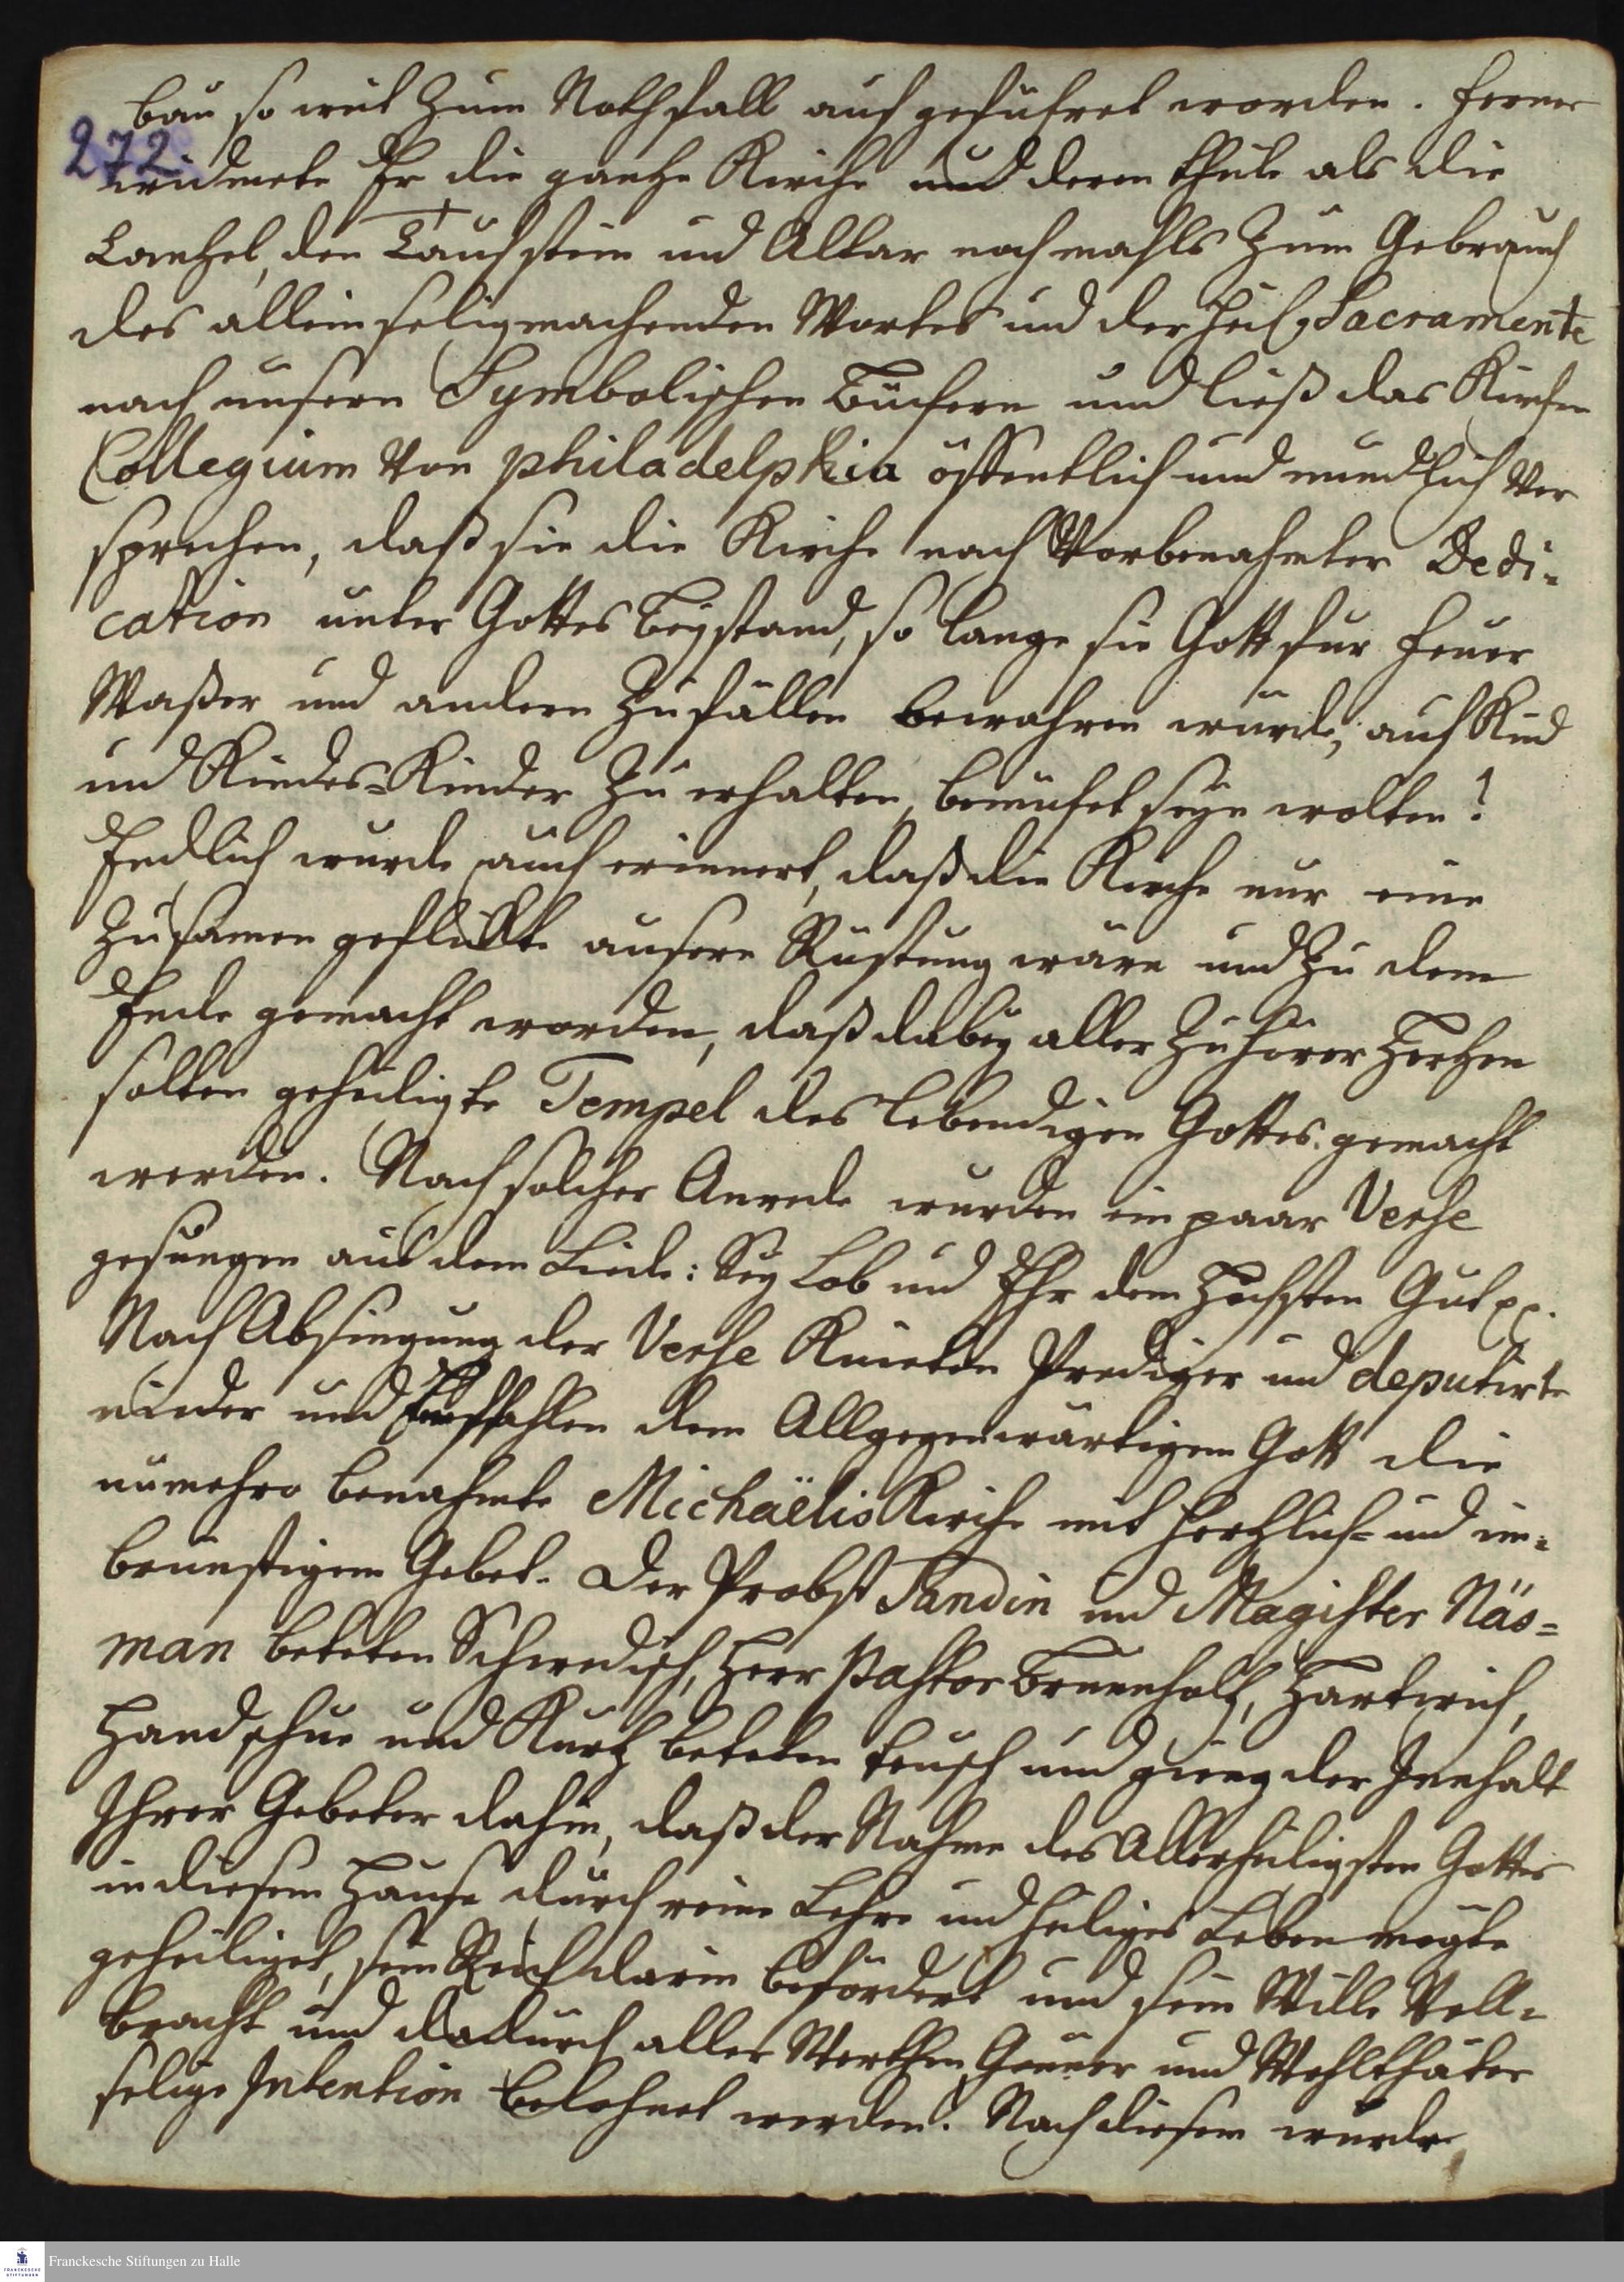 272
bau so weit zum Nothfall aufgeführet worden. Ferner
widmete Er die gantze Kirche und deren theile als die
Cantzel, den Taufstein und Altar nochmahls zum Gebrauch
des allein seligmachenden Wortes und der heil. Sacramente
nach unsern Symbolischen Büchern und ließ das Kirchen
Collegium von philadelphia öffentlich und mundlich ver
sprechen, daß sie die Kirche nach vorbenahmter Dedi-
cation unter Gottes Beystand, so lange sie Gott fur Feuer
Waßer und andern Zufällen bewahren würde, auf Kind
und Kindes-Kinder zu erhalten, bemühet seyn wolten!
Endlich wurde auch erinnert, daß die Kirche nur eine
zusamen geflickte ausere Rüstung wäre und zu dem
Ende gemacht worden, daß dabey aller Zuhörer Hertzen
solten geheiligte Tempel des lebendigen Gottes gemacht
werden. Nach solcher Anrede wurden ein paar Verse
gesungen aus dem Liede: Sey Lob und Ehr dem Höchsten Gut pp.
Nach Absingung der Verse Knieten Prediger und deputirte
nieder und Empfahlen dem Allgegenwärtigen Gott die
numehro benahmte Michaëlis Kirche mit hertzlich- und in-
brünstigem Gebet. Der Probst Sandin und Magister Näs-
man beteten Schwedisch, Herr Pastor Brunnholtz, Hartwich,
Handschue und Kurtz beteten teusch und gieng der Innhalt
Ihrer Gebeter dahin, daß der Nahme des Allerheiligsten Gottes
in diesem Hause durch reine Lehre und heiliges Leben mögte
geheiliget, sein Reich darin befördert und sein Wille voll-
bracht und dadurch aller Werthen Gönner und Wohlthäter
selige Intention belohnet werden. Nach diesem wurde
Franckesche Stiftungen zu Halle